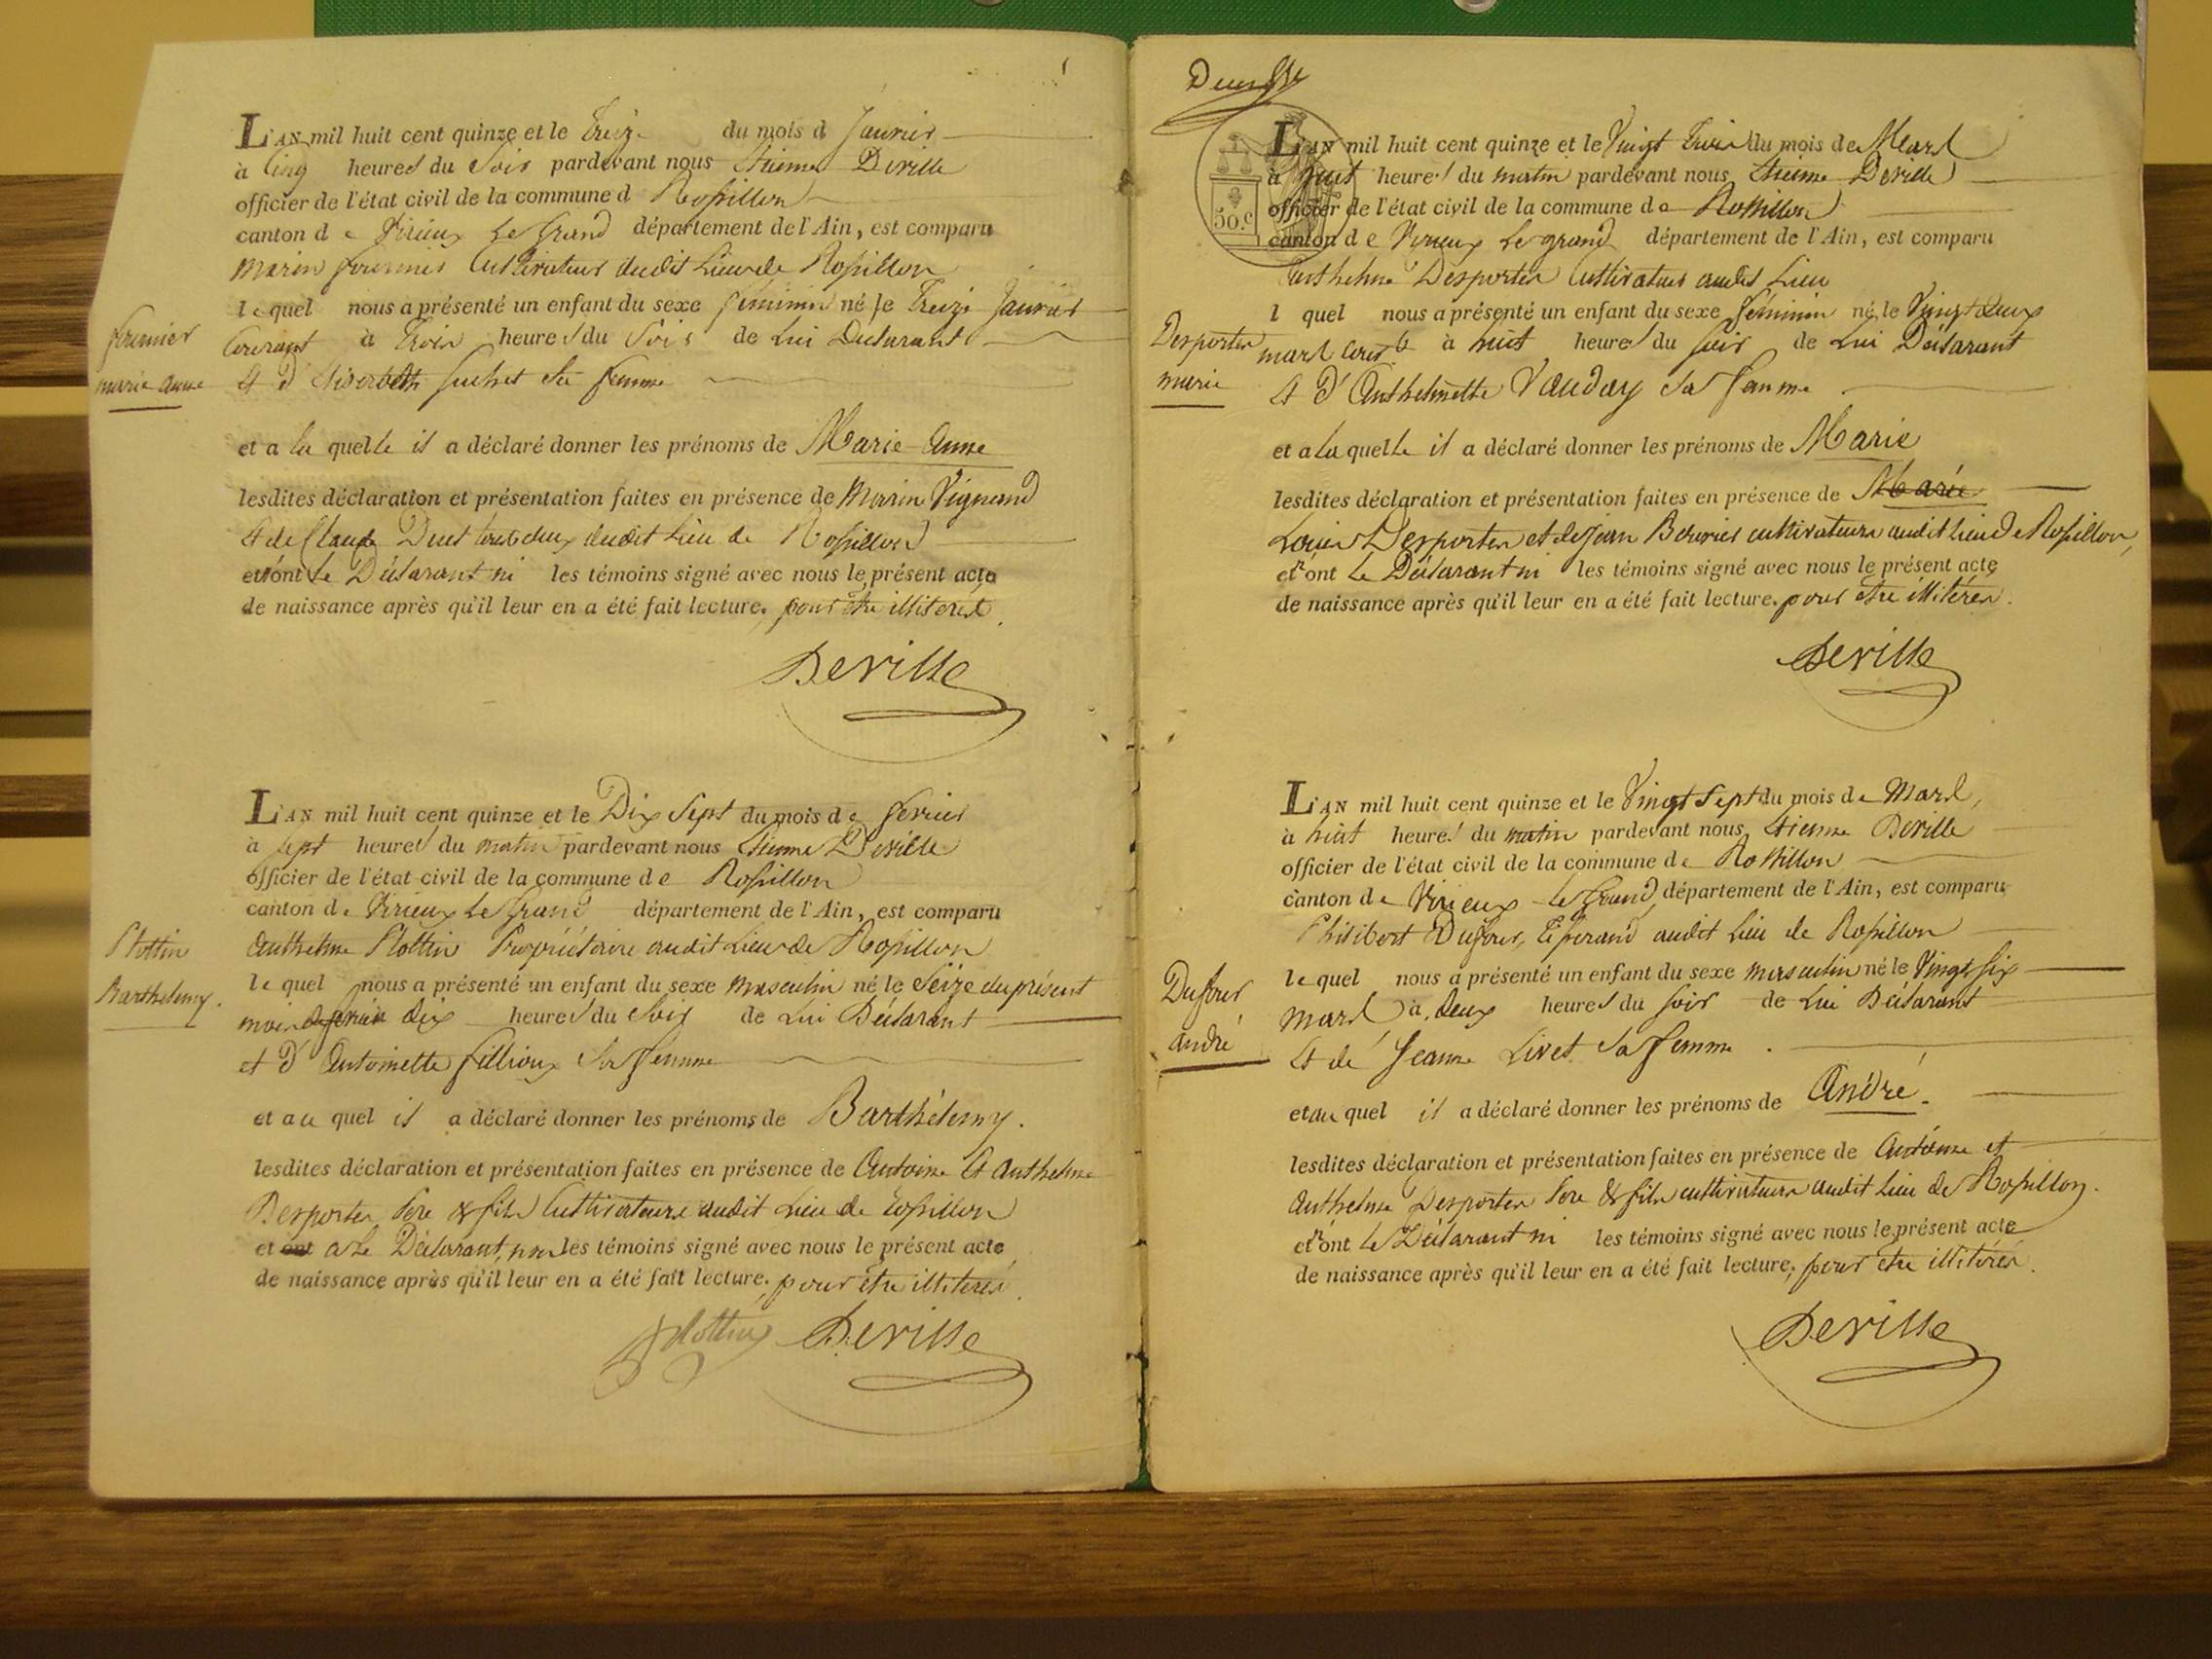 L'AN mil huit cent quinze et le Treize du mois d Janvier
à Cinq heures du Soir pardevant nous Etienne Deville
officier de l'état civil de la commune d Rossillon
canton de Virieux Le Grand département de l'Ain, est comparu
Marin fournier Cultivateur dudit Lieu de Rossillon
le quel nous a présenté un enfant du sexe féminin né le Treize Janvier
Courant à Trois heures du Soir de Lui Déclarant
fournier
marie anne
& d' Elisabeth Suchet Sa femme
et a la quelle il a déclaré donner les prénoms de Marie Anne
lesdites déclaration et présentation faites en présence de Marin Vignand
& de Claude tous deux dudit Lieu de Rossillon
et n'ont Le Déclarant ni les témoins signé avec nous le présent acte
de naissance après qu'il leur en a été fait lecture, pour être illiterés.
Deville
L'AN mil huit cent quinze et le Dix Sept du mois de fevrier
à Sept heures du matin pardevant nous Etienne Deville
officier de l'état civil de la commune de Rossillon
canton de Virieux Le Grand département de l'Ain, est comparu
Anthelme Plottin Propriétaire audit Lieu de Rossillon
Plottin
Barthelemy.
le quel nous a présenté un enfant du sexe masculin né le Seize du présent
mois de fevrier dix heures du Soir de Lui Déclarant
et d' Antoinette fillioux Sa femme
et au quel il a déclaré donner les prénoms de Barthélemy.
lesdites déclaration et présentation faites en présence de Antoine & Anthelme
Desportes Pere & fils Cultivateurs audit Lieu de Rossillon
et ont a Le Déclarant, non les témoins signé avec nous le présent acte
de naissance après qu'il leur en a été fait lecture, pour être illiterés.
Plottin Deville
50.c
L'AN mil huit cent quinze et le Vingt Trois du mois de Mars
à huit heures du matin pardevant nous Etienne Deville
officier de l'état civil de la commune de Rossillon
canton de Virieux Le grand département de l'Ain, est comparu
Anthelme Desportes Cultivateur audit Lieu
l quel nous a présenté un enfant du sexe féminin né le Vingt deux
mars court à huit heures du soir de Lui Déclarant
Desportes
marie
& d' Anthelmette Vauday Sa femme
et a la quelle il a déclaré donner les prénoms de Marie
lesdites déclaration et présentation faites en présence de Marie
Louis Desportes et de Jean Bouvier cultivateurs audit lieu de Rossillon,
et n'ont Le Déclarant ni les témoins signé avec nous le présent acte
de naissance après qu'il leur en a été fait lecture. pour être illitérés.
Deville
L'AN mil huit cent quinze et le Vingt Sept du mois de Mars,
à huit heures du matin pardevant nous Etienne Deville
officier de l'état civil de la commune de Rossillon
canton de Virieux Le Grand, département de l'Ain, est comparu
Philibert Dufour, audit Lieu de Rossillon
le quel nous a présenté un enfant du sexe masculin né le Vingt Six
Dufour
André
mars à deux heures du soir de Lui Déclarant
& de Jeanne Livet Sa femme.
et au quel il a déclaré donner les prénoms de André.
lesdites déclaration et présentation faites en présence de Antoine et
Anthelme Desportes Pere & fils cultivateurs audit Lieu de Rossillon.
et n'ont Le Déclarant ni les témoins signé avec nous le présent acte
de naissance après qu'il leur en a été fait lecture, pour être illitérés.
Deville